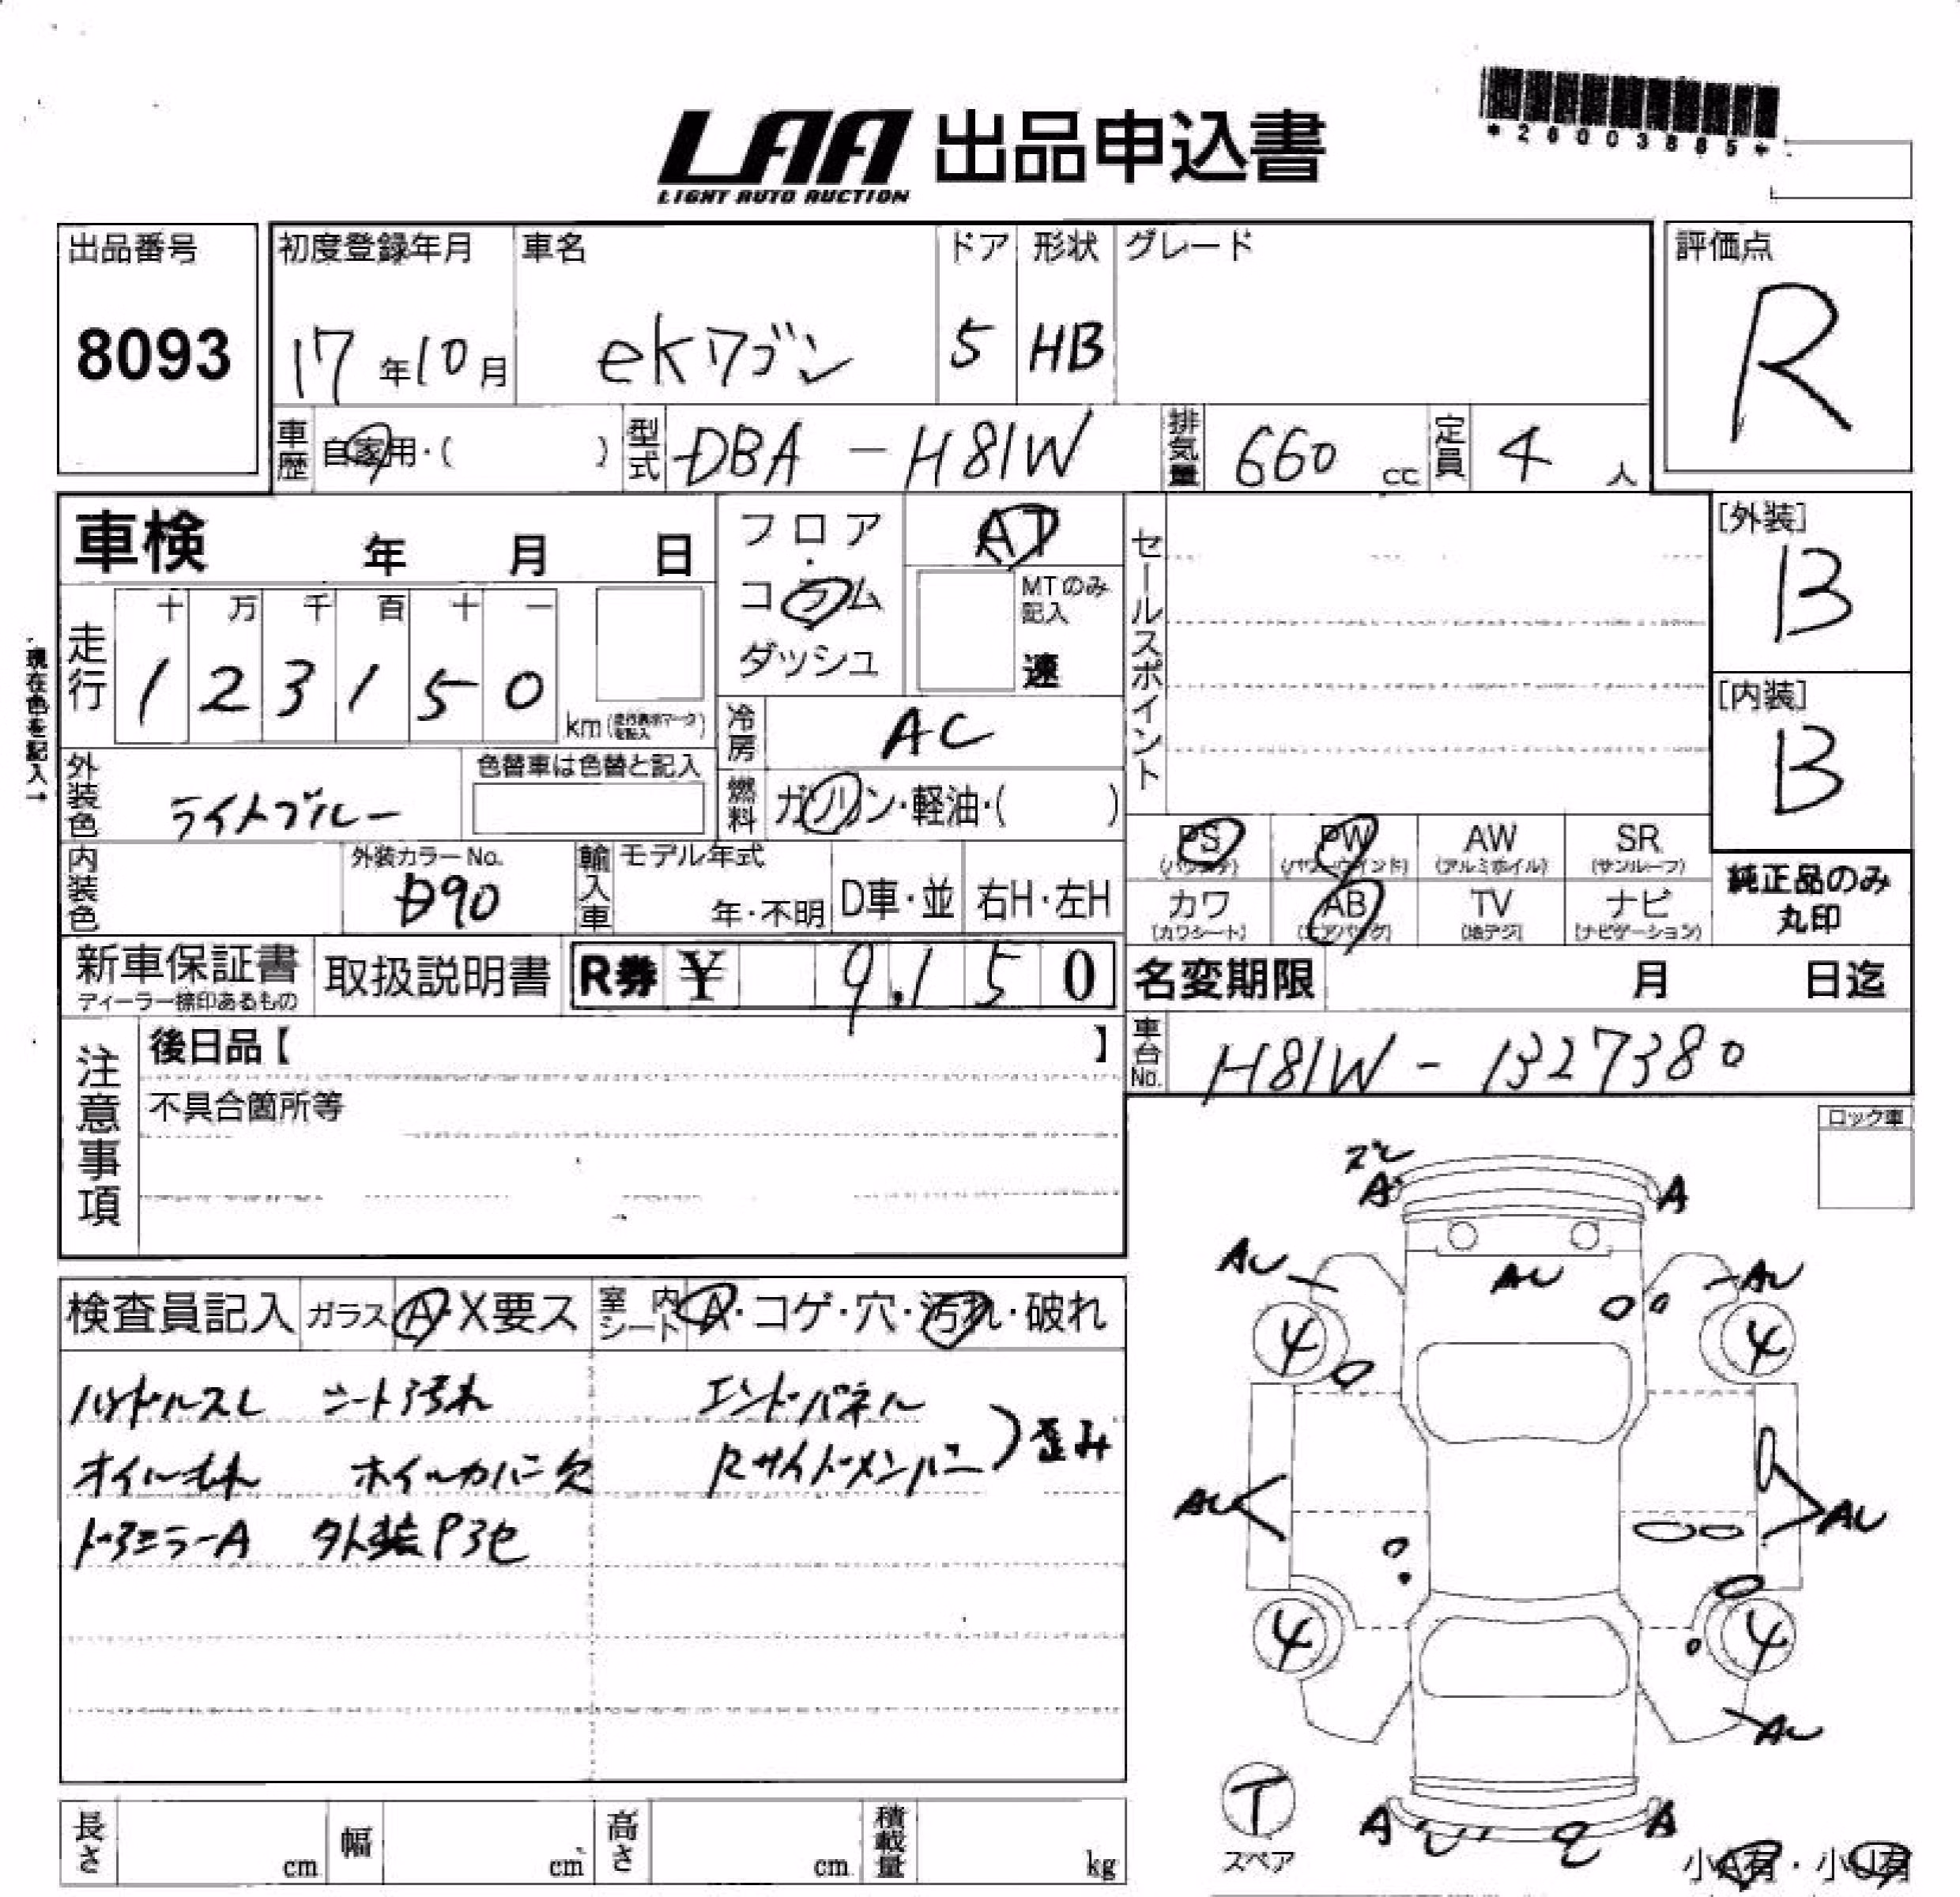 LAA 出品申込書
LIGHT AUTO AUCTION
*26003885*
出品番号
8093
初度登録年月
17年10月
車名
ekワゴン
ドア
5
形状
HB
グレード
評価点
R
車歴
自家用・( )
型式
DBA-H81W
排気量
660 cc
定員
4 人
車検 年 月 日
フロア・コラム ダッシュ
AT
MTのみ記入
速
セールスポイント
[外装]
B
[内装]
B
現在色を記入→
走行
十 万 千 百 十 一
1 2 3 1 5 0
km (走行表示マークを記入)
冷房
AC
外装色
ライトブルー
色替車は色替と記入
燃料
ガソリン・軽油・( )
PS (パワステ)
PW (パワーウィンド)
AW (アルミホイル)
SR (サンルーフ)
カワ (カワシート)
AB (エアバッグ)
TV (地デジ)
ナビ (ナビゲーション)
純正品のみ
丸印
内装色
外装カラーNo.
D90
輸入車
モデル年式
年・不明
D車・並
右H・左H
新車保証書
ディーラー捺印あるもの
取扱説明書
R券 ¥ 9,150
名変期限 月 日迄
車台No.
H81W-1327380
注意事項
後日品【 】
不具合箇所等
ロック車
検査員記入
ガラス A・X要ス
室内シート A・コゲ・穴・汚れ・破れ
ハンドルスレ シート汚れ
オイルモレ ホイルカバー欠
ドアミラーA 外装P3セ
エンドパネル
Rサイドメンバー ) 歪み
A A
AU AU AU
4 4
AU AU
4 4
AU
T
スペア
A A
小A有・小U有
長さ cm
幅 cm
高さ cm
積載量 kg